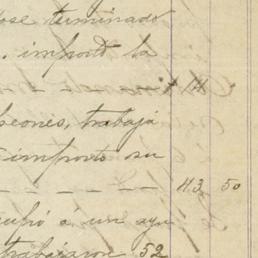 ose terminado
importó la
peones, trabajá
importó su
113 50
cupó á un ayu
trabajaron 52